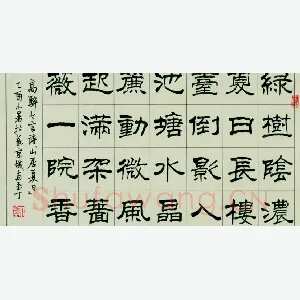 綠樹陰濃
夏日長樓
臺倒影入
池塘水晶
簾動微風
起滿架薔
薇一院香
高駢七言詩山居夏日
乙酉小暑於燕京城
Shufawang.CN